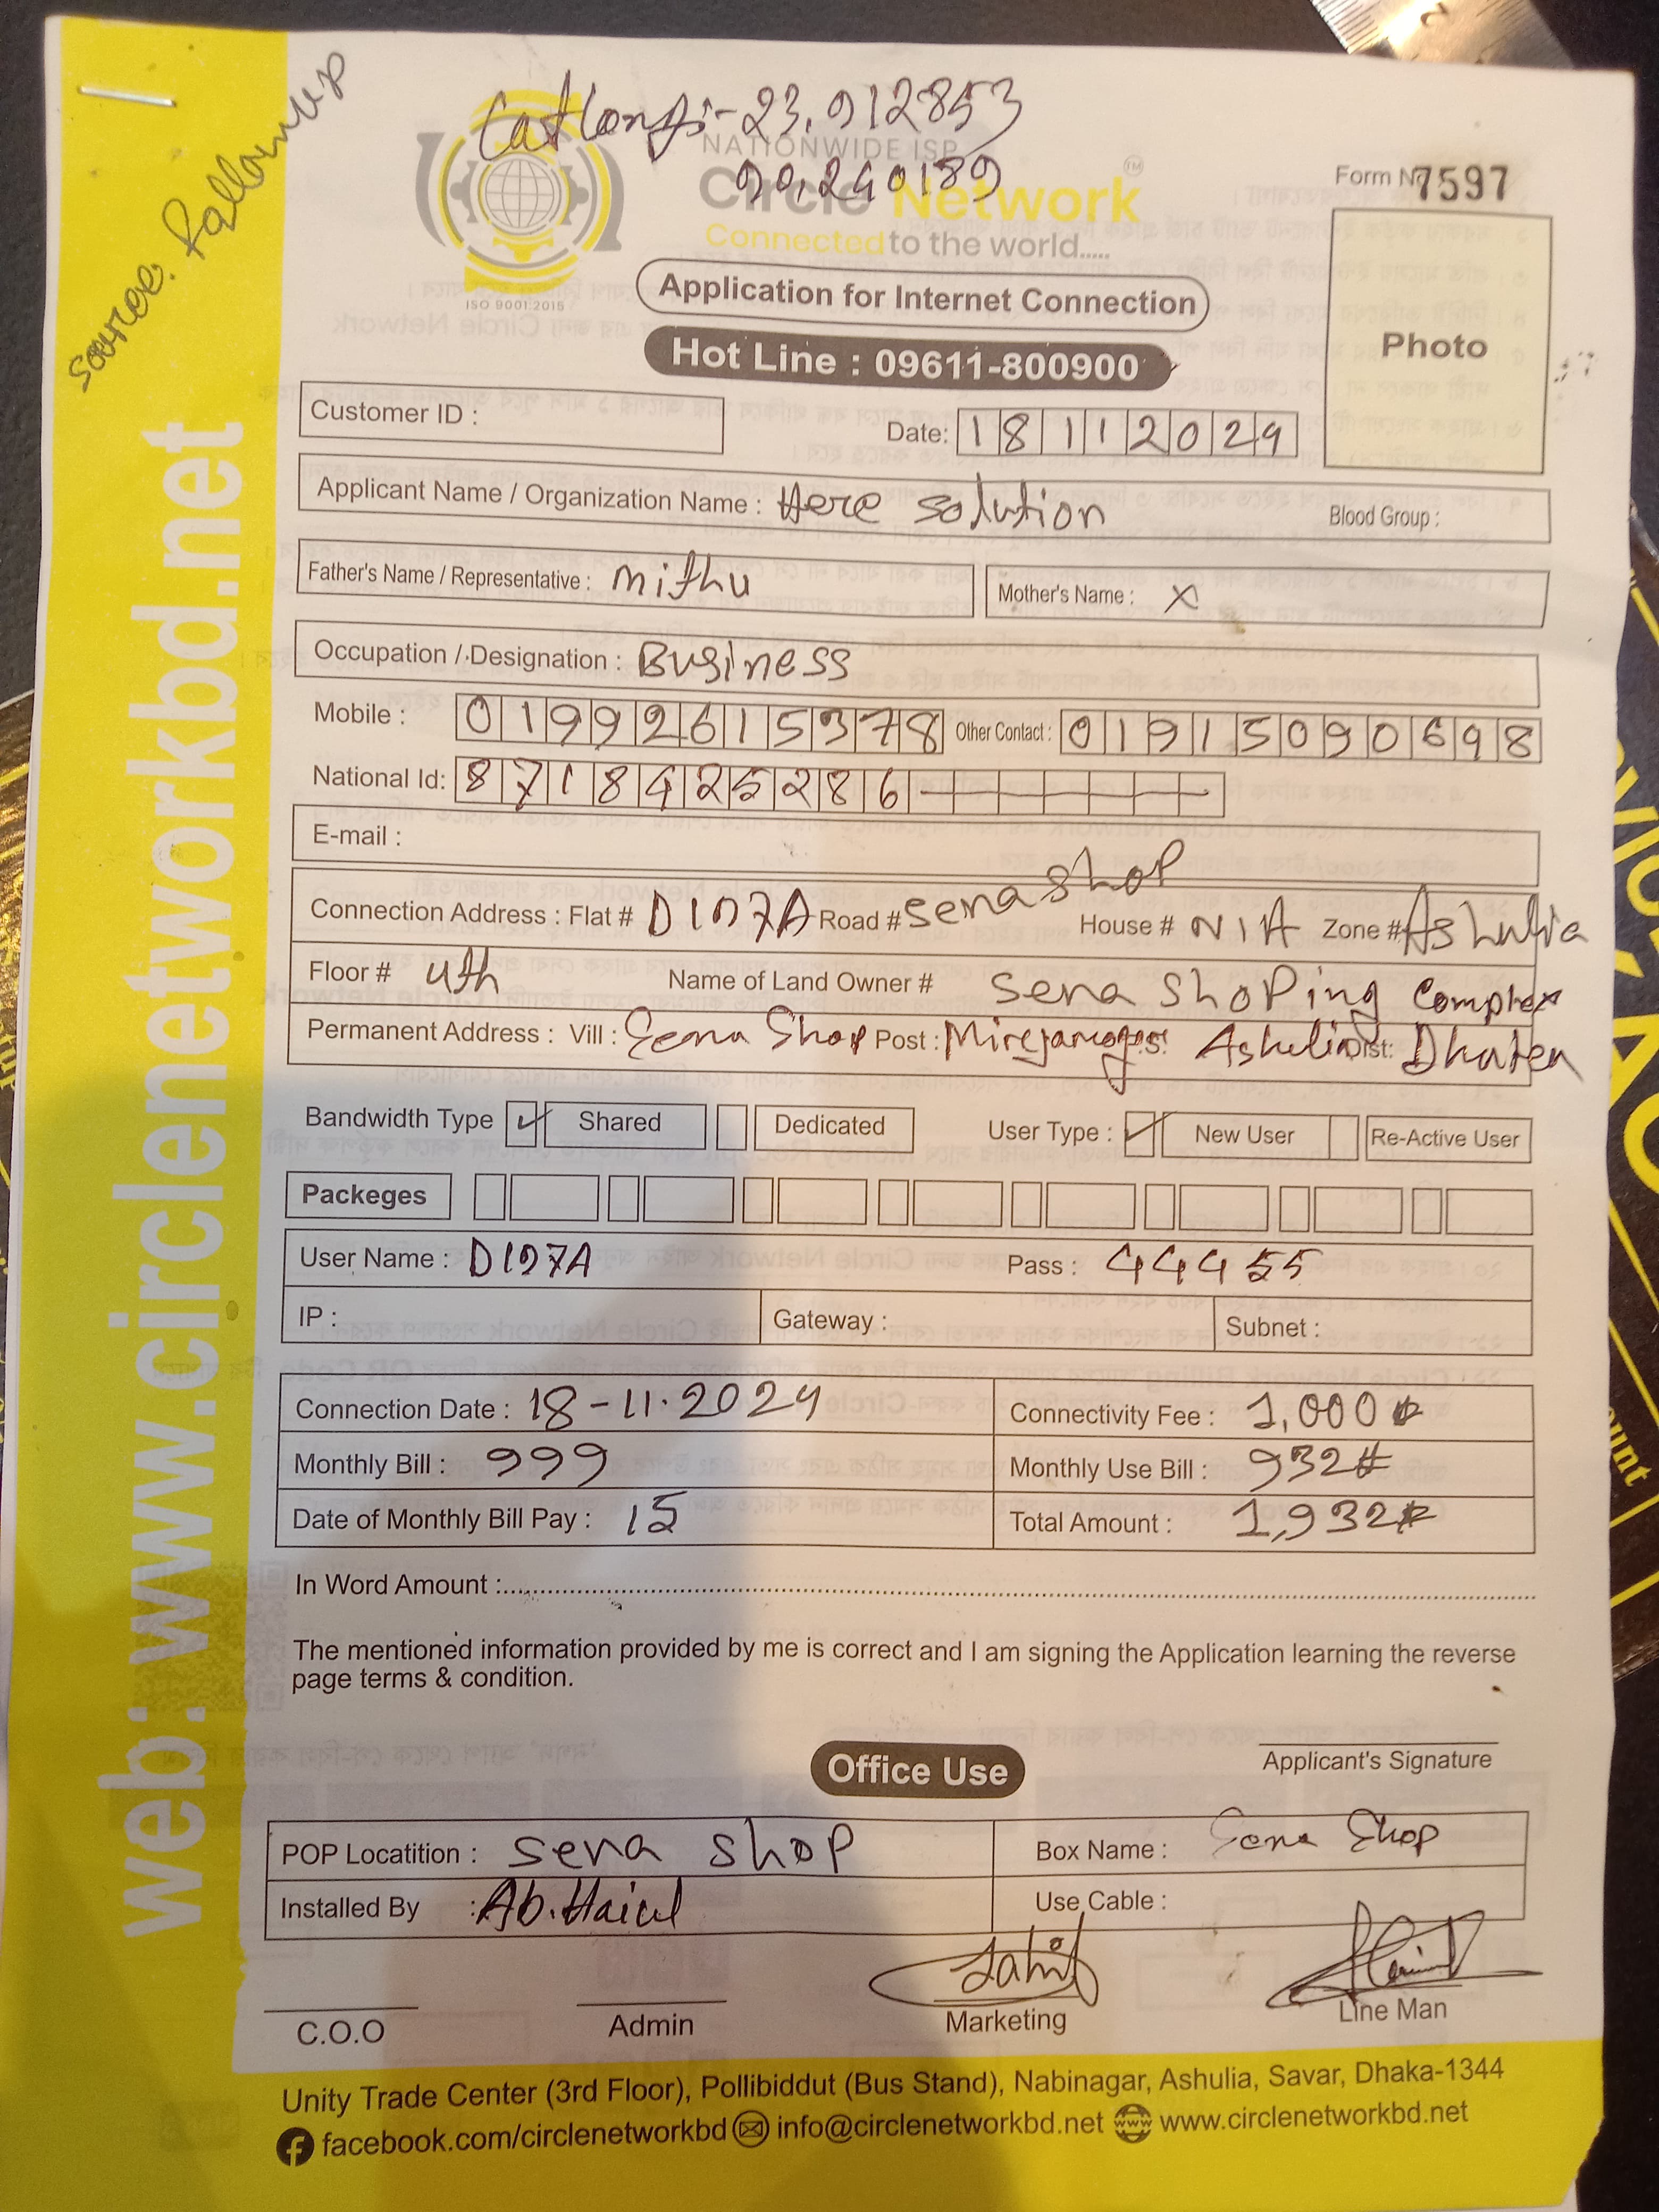 Source: Fallowup
Latlong:- 23.912853
90.240189
NATIONWIDE ISP
Circle Network™
Connected to the world.....
ISO 9001:2015
Form No 7597
Application for Internet Connection
Photo
Hot Line : 09611-800900
Customer ID :
Date: 18112024
Applicant Name / Organization Name : Here solution Blood Group :
Father's Name / Representative : mithu Mother's Name : X
Occupation / Designation : Business
Mobile : 01992615378 Other Contact : 01915090698
National Id: 8718425286
E-mail :
Connection Address : Flat # D107A Road # sena shop House # N/A Zone # Ashulia
Floor # 4th Name of Land Owner # sena shoping complex
Permanent Address : Vill : Sena Shop Post : P.S: Ashulia Dist: Dhaka
Bandwidth Type ✓ Shared Dedicated User Type : ✓ New User Re-Active User
Packeges
User Name : D107A Pass : 44455
IP : Gateway : Subnet :
Connection Date : 18-11-2024 Connectivity Fee : 1,000
Monthly Bill : 999 Monthly Use Bill : 932
Date of Monthly Bill Pay : 15 Total Amount : 1,932
In Word Amount :
The mentioned information provided by me is correct and I am signing the Application learning the reverse
page terms & condition.
Applicant's Signature
Office Use
POP Locatition : sena shop Box Name : Sena Shop
Installed By : Use Cable :
C.O.O Admin Marketing Line Man
Unity Trade Center (3rd Floor), Pollibiddut (Bus Stand), Nabinagar, Ashulia, Savar, Dhaka-1344
facebook.com/circlenetworkbd info@circlenetworkbd.net www.circlenetworkbd.net
web: www.circlenetworkbd.net